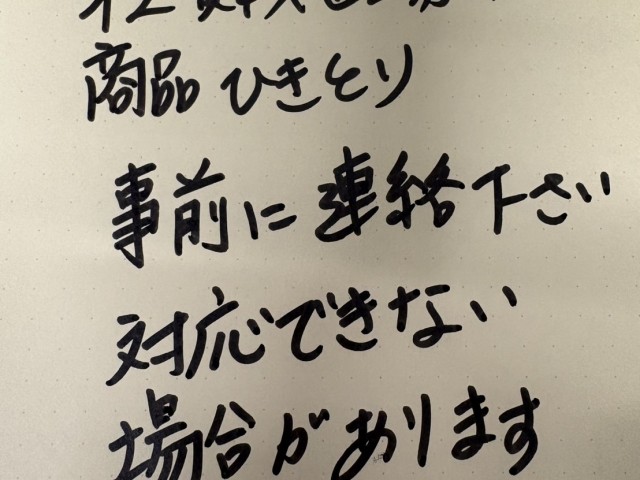 商品ひきとり
事前に連絡下さい
対応できない
場合があります